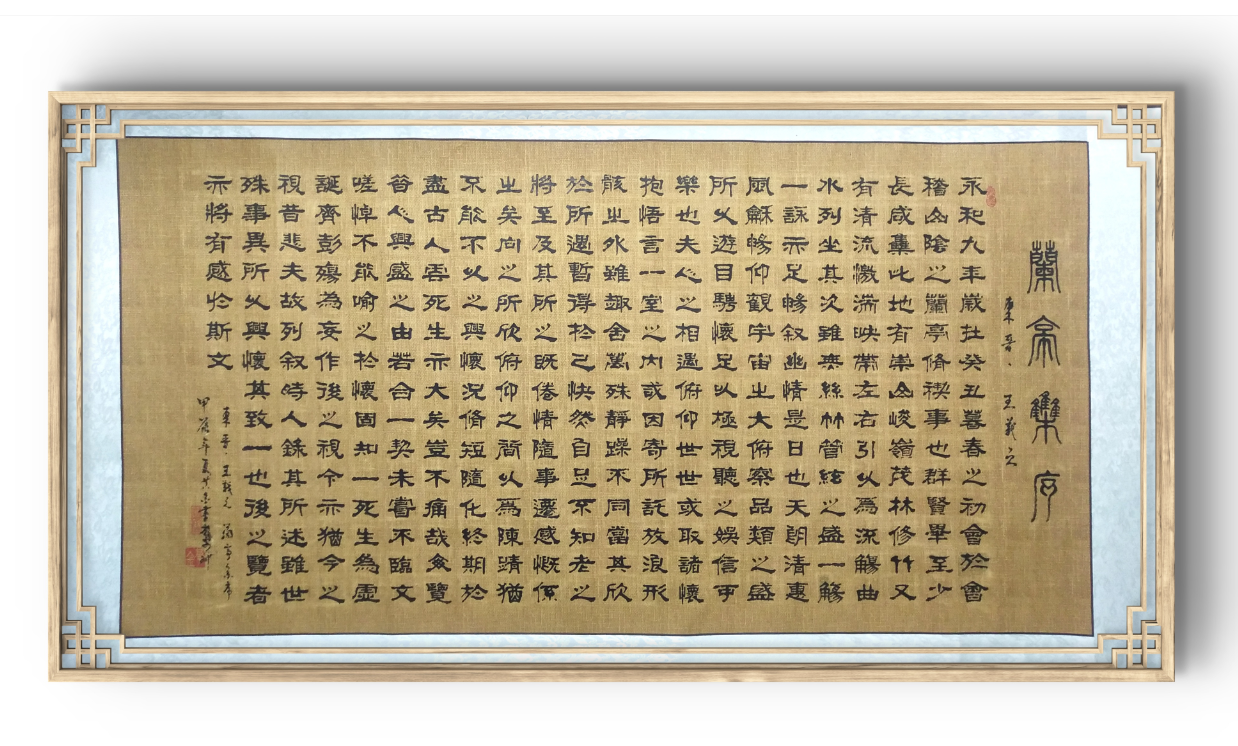 蘭亭集序
東晉·王羲之
永和九年歲在癸丑暮春之初會於會
稽山陰之蘭亭脩禊事也群賢畢至少
長咸集此地有崇山峻嶺茂林修竹又
有清流激湍映帶左右引以為流觴曲
水列坐其次雖無絲竹管絃之盛一觴
一詠亦足暢叙幽情是日也天朗清惠
風龢暢仰觀宇宙之大俯察品類之盛
所以遊目騁懷足以極視聽之娛信可
樂也夫人之相遇俯仰世世或取諸懷
抱悟言一室之内或因寄所託放浪形
骸之外雖趣舍萬殊靜躁不同當其欣
於所遇暫得於己快然自足不知老之
將至及其所之既倦情隨事遷感慨係
之矣向之所欣俯仰之間以為陳蹟猶
不能不以之興懷況脩短隨化終期於
盡古人云死生亦大矣豈不痛哉每覽
昔人興盛之由若合一契未嘗不臨文
嗟悼不能喻之於懷固知一死生為虛
誕齊彭殤為妄作後之視今亦猶今之
視昔悲夫故列叙時人錄其所述雖世
殊事異所以興懷其致一也後之覽者
亦將有感於斯文
東晉·王羲之蘭亭集序